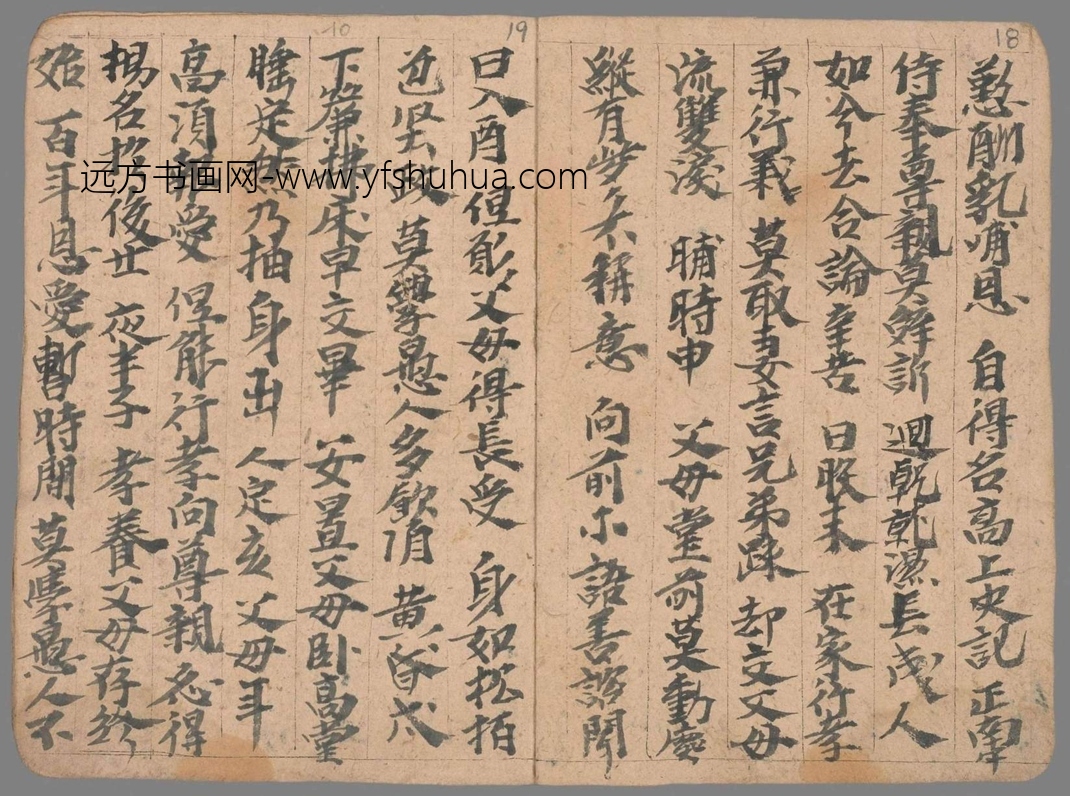 18
懃酬乳哺恩 自得名高上史記 正南
侍奉尊親莫辞訴 迴乾就濕長成人
如今去合論辛苦 日昳未 在家行孝
兼行義 莫取妻言兄弟疎 却交父母
流雙淚 晡時申 父母堂前莫動塵
縱有些些不稱意 向前小語善諮聞
19
日入酉 但願父母得長受 身如松柏
色坚政 莫學愚人多飲酒 黄昏戌
下簾拂床早交畢 安置父母卧高堂
睡定然乃抽身出 人定亥 父母年
高須報愛 但能行孝向尊親 忽得
揚名於後世 夜半子 孝養父母存終
始 百年恩愛暫時間 莫學愚人不
10
远方书画网-www.yfshuhua.com